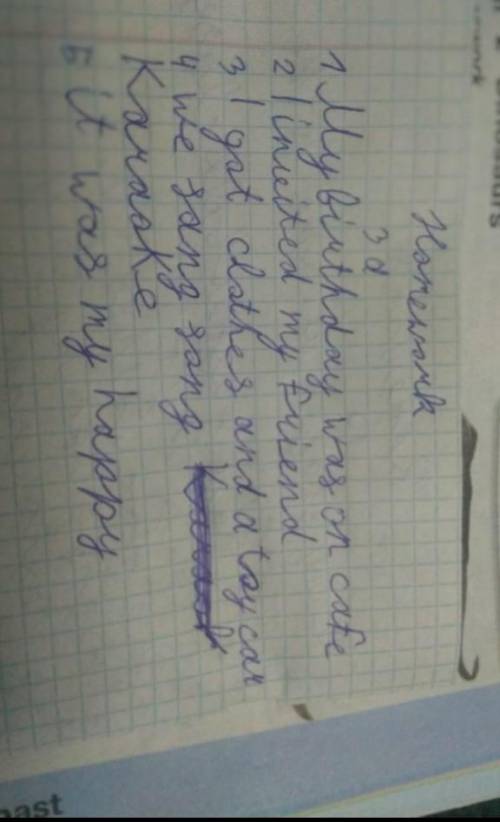 Homework
3 d
1 My birthday was on cafe
2 I invited my friend
3 I got clothes and a toy car
4 we sang song
Karaoke
5 it was my happy
past